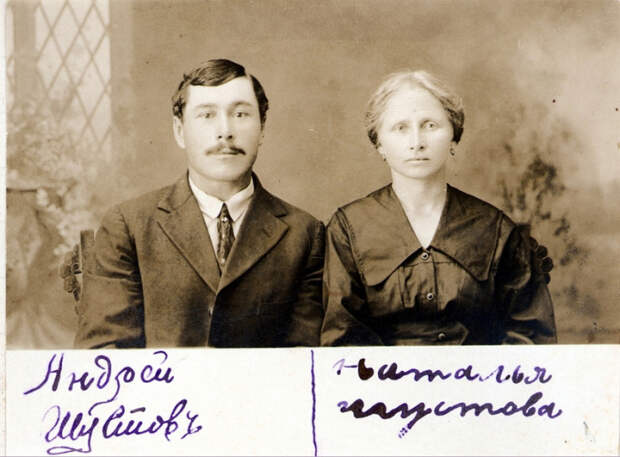 Андрей
Шустовъ
Наталья
Шустова